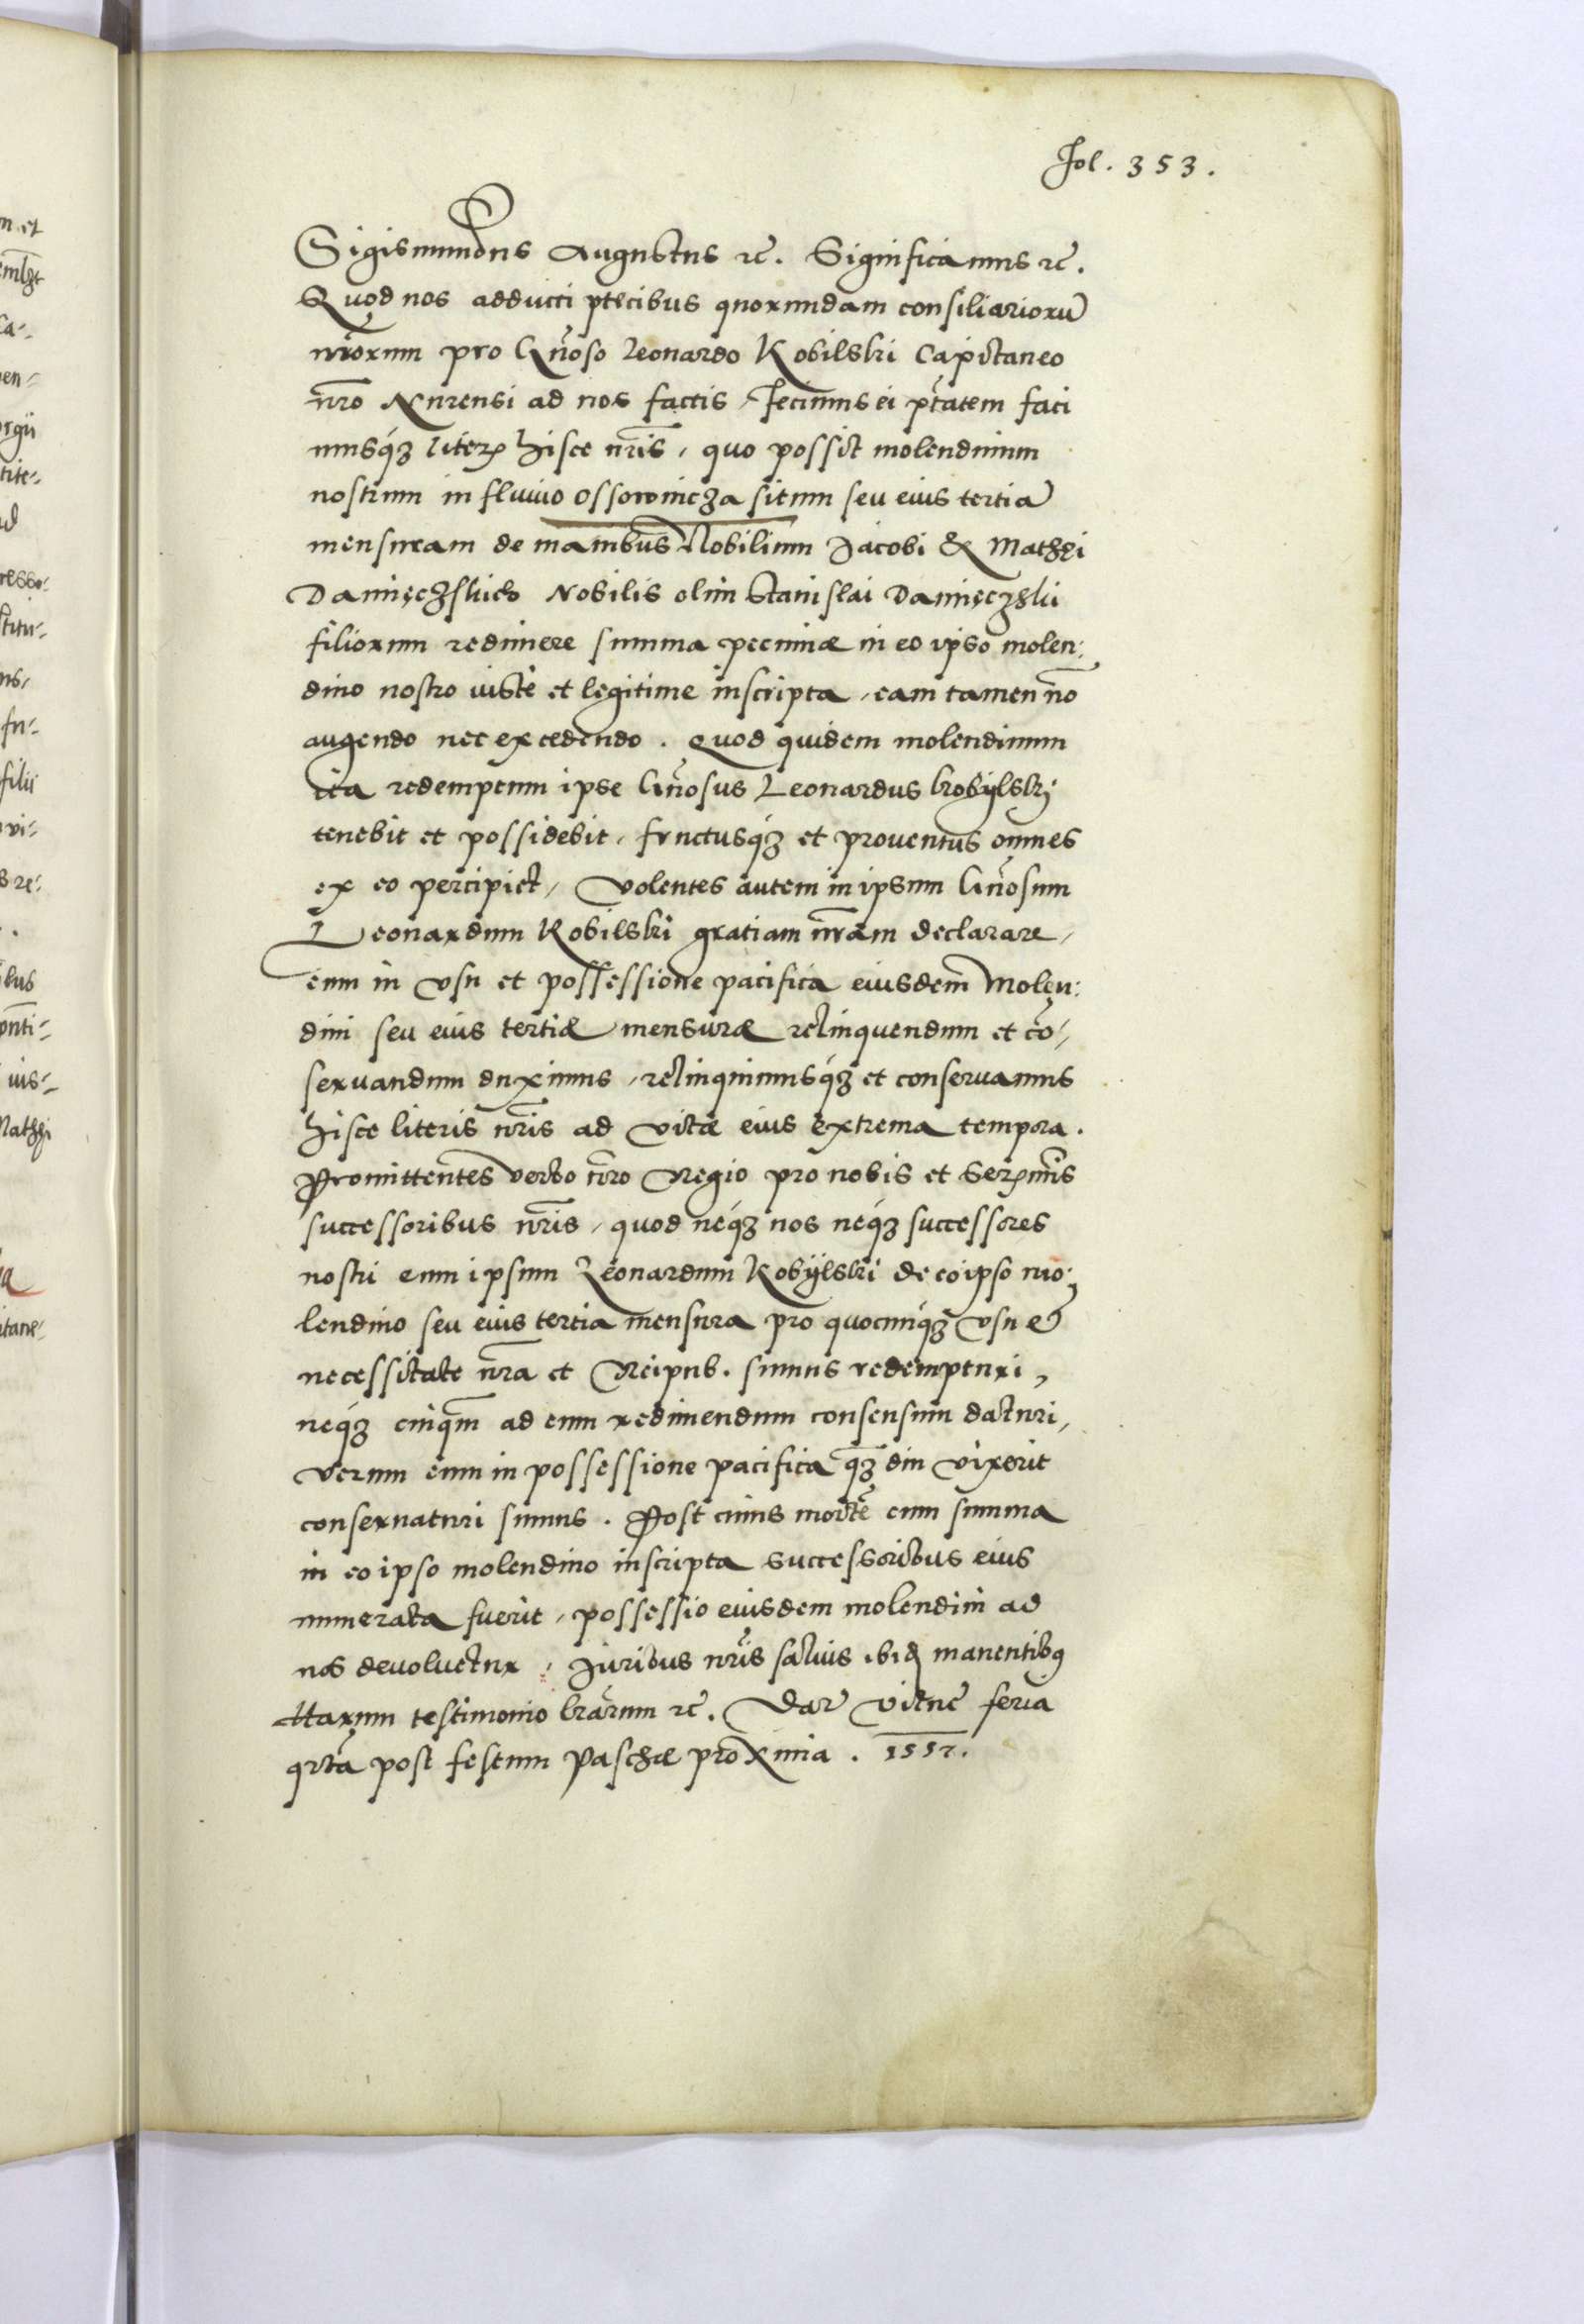 Fol. 353.
Sigismundus Augustus rc̃. Significamus rc̃.
Quod nos adducti p̃tecibus quorundam consiliariorũ
nr̃orum pro Gñoso Leonardo Kobilski Capitaneo
nr̃o Nurensi ad nos factis, Fecimus ei p̃tatem faci
musq́ʒ literꝭ hisce nr̃is, quo possit molendinum
nostrum in fluuio Ossownicza situm seu eius tertiã
mensuram de manibus Nobilium Jacobi & Mathęi
Damięczskich Nobilis olim Stanislai Damięczski
filiorum redimere summa pecuniæ in eo ipso molen:
dino nostro iustè et legitime inscripta, eam tamen nõ
augendo nec excedendo. Quod quidem molendinum
ita redemptum ipse Gñosus Leonardus Kobÿlskj
tenebit et possidebit, fructusq́ʒ et prouentus omnes
ex eo percipiet, Volentes autem in ipsum Gñosum
Leonardum Kobilski gratiam nr̃am declarare,
eum in vsu et possessione pacifica eiusdem Molen:
dini seu eius tertiæ mensuræ relinquendum et cõ,
seruandum duximus, relinquimusq́ʒ et conseruamus
hisce literis nr̃is ad vitæ eius extrema tempora.
Promittentes verbo nr̃o Regio pro nobis et Serꝭmis
successoribus nr̃is, quod neq́ʒ nos neq́ʒ successores
nostri eum ipsum Leonardum Kobÿlski de eo ipso mo:
lendino seu eius tertia mensura pro quocunq́ʒ vsu et
necessitate nr̃a et Reipub. sumus redempturi,
neq́ʒ cuiq̃m ad eum redimendum consensum daturi,
verum eum in possessione pacifica q̃ʒ diu vixerit
conseruaturi sumus. Post cuius mortẽ cum summa
in eo ipso molendino inscripta successoribus eius
numerata fuerit, possessio eiusdem molendini ad
nos deuoluetur, Juribus nr̃is saluis ibidꝭ manentibꝰ
Harum testimonio lr̃arum rc̃. Dat̃ Vilnę feria
qrtã post festum Paschæ proxima. 1557.